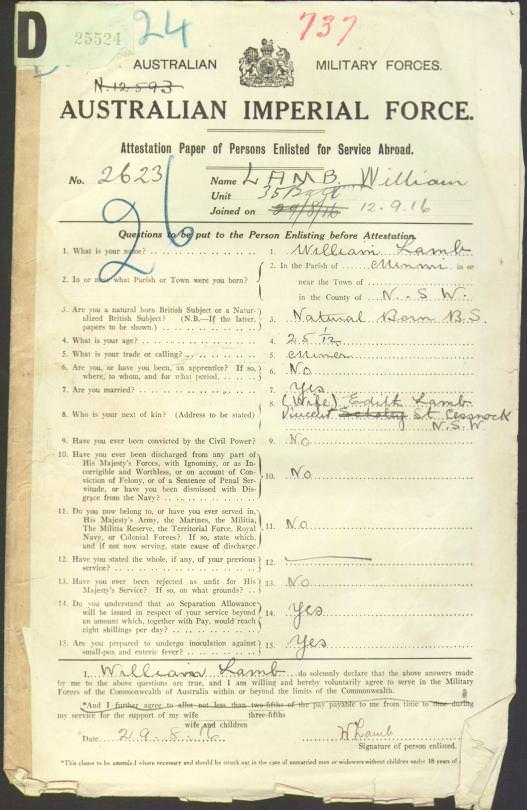 D 25524 24 737
AUSTRALIAN MILITARY FORCES.
N.12593
AUSTRALIAN IMPERIAL FORCE.
Attestation Paper of Persons Enlisted for Service Abroad.
No. 2623 Name LAMB, William
Unit 35 Battn
Joined on 29/8/16 12.9.16
26
Questions to be put to the Person Enlisting before Attestation.
1. What is your name? 1. William Lamb
2. In or near what Parish or Town were you born? 2. In the Parish of Minmi in or
near the Town of
in the County of N.S.W.
3. Are you a natural born British Subject or a Natur-
alized British Subject? (N.B.—If the latter, 3. Natural Born B.S.
papers to be shown.)
4. What is your age? 4. 25
5. What is your trade or calling? 5. Miner
6. Are you, or have you been, an apprentice? If so, 6. No
where, to whom, and for what period.
7. Are you married? 7. Yes
8. Who is your next of kin? (Address to be stated) 8. (Wife) Edith Lamb
Vincent St. Cessnock
N.S.W
9. Have you ever been convicted by the Civil Power? 9. No
10. Have you ever been discharged from any part of
His Majesty's Forces, with Ignominy, or as In-
corrigible and Worthless, or on account of Con-
viction of Felony, or of a Sentence of Penal Ser- 10. No
vitude, or have you been dismissed with Dis-
grace from the Navy?
11. Do you now belong to, or have you ever served in,
His Majesty's Army, the Marines, the Militia,
The Militia Reserve, the Territorial Force, Royal 11. No
Navy, or Colonial Forces? If so, state which,
and if not now serving, state cause of discharge
12. Have you stated the whole, if any, of your previous 12.
service?
13. Have you ever been rejected as unfit for His 13. No
Majesty's Service? If so, on what grounds?
14. Do you understand that no Separation Allowance
will be issued in respect of your service beyond 14. Yes
an amount which, together with Pay, would reach
eight shillings per day?
15. Are you prepared to undergo inoculation against 15. Yes
small-pox and enteric fever?
I, William Lamb do solemnly declare that the above answers made
by me to the above questions are true, and I am willing and hereby voluntarily agree to serve in the Military
Forces of the Commonwealth of Australia within or beyond the limits of the Commonwealth.
*And I further agree to allot not less than two-fifths of the pay payable to me from time to time during
my service for the support of my wife three-fifths
wife and children
Date 29.8.16 W Lamb
Signature of person enlisted.
*This clause to be amended where necessary and should be struck out in the case of unmarried men or widowers without children under 18 years of